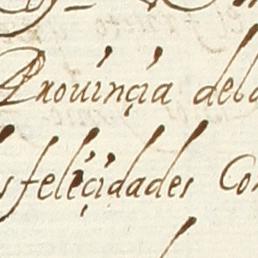 Prouinçia de
feleçidades Co